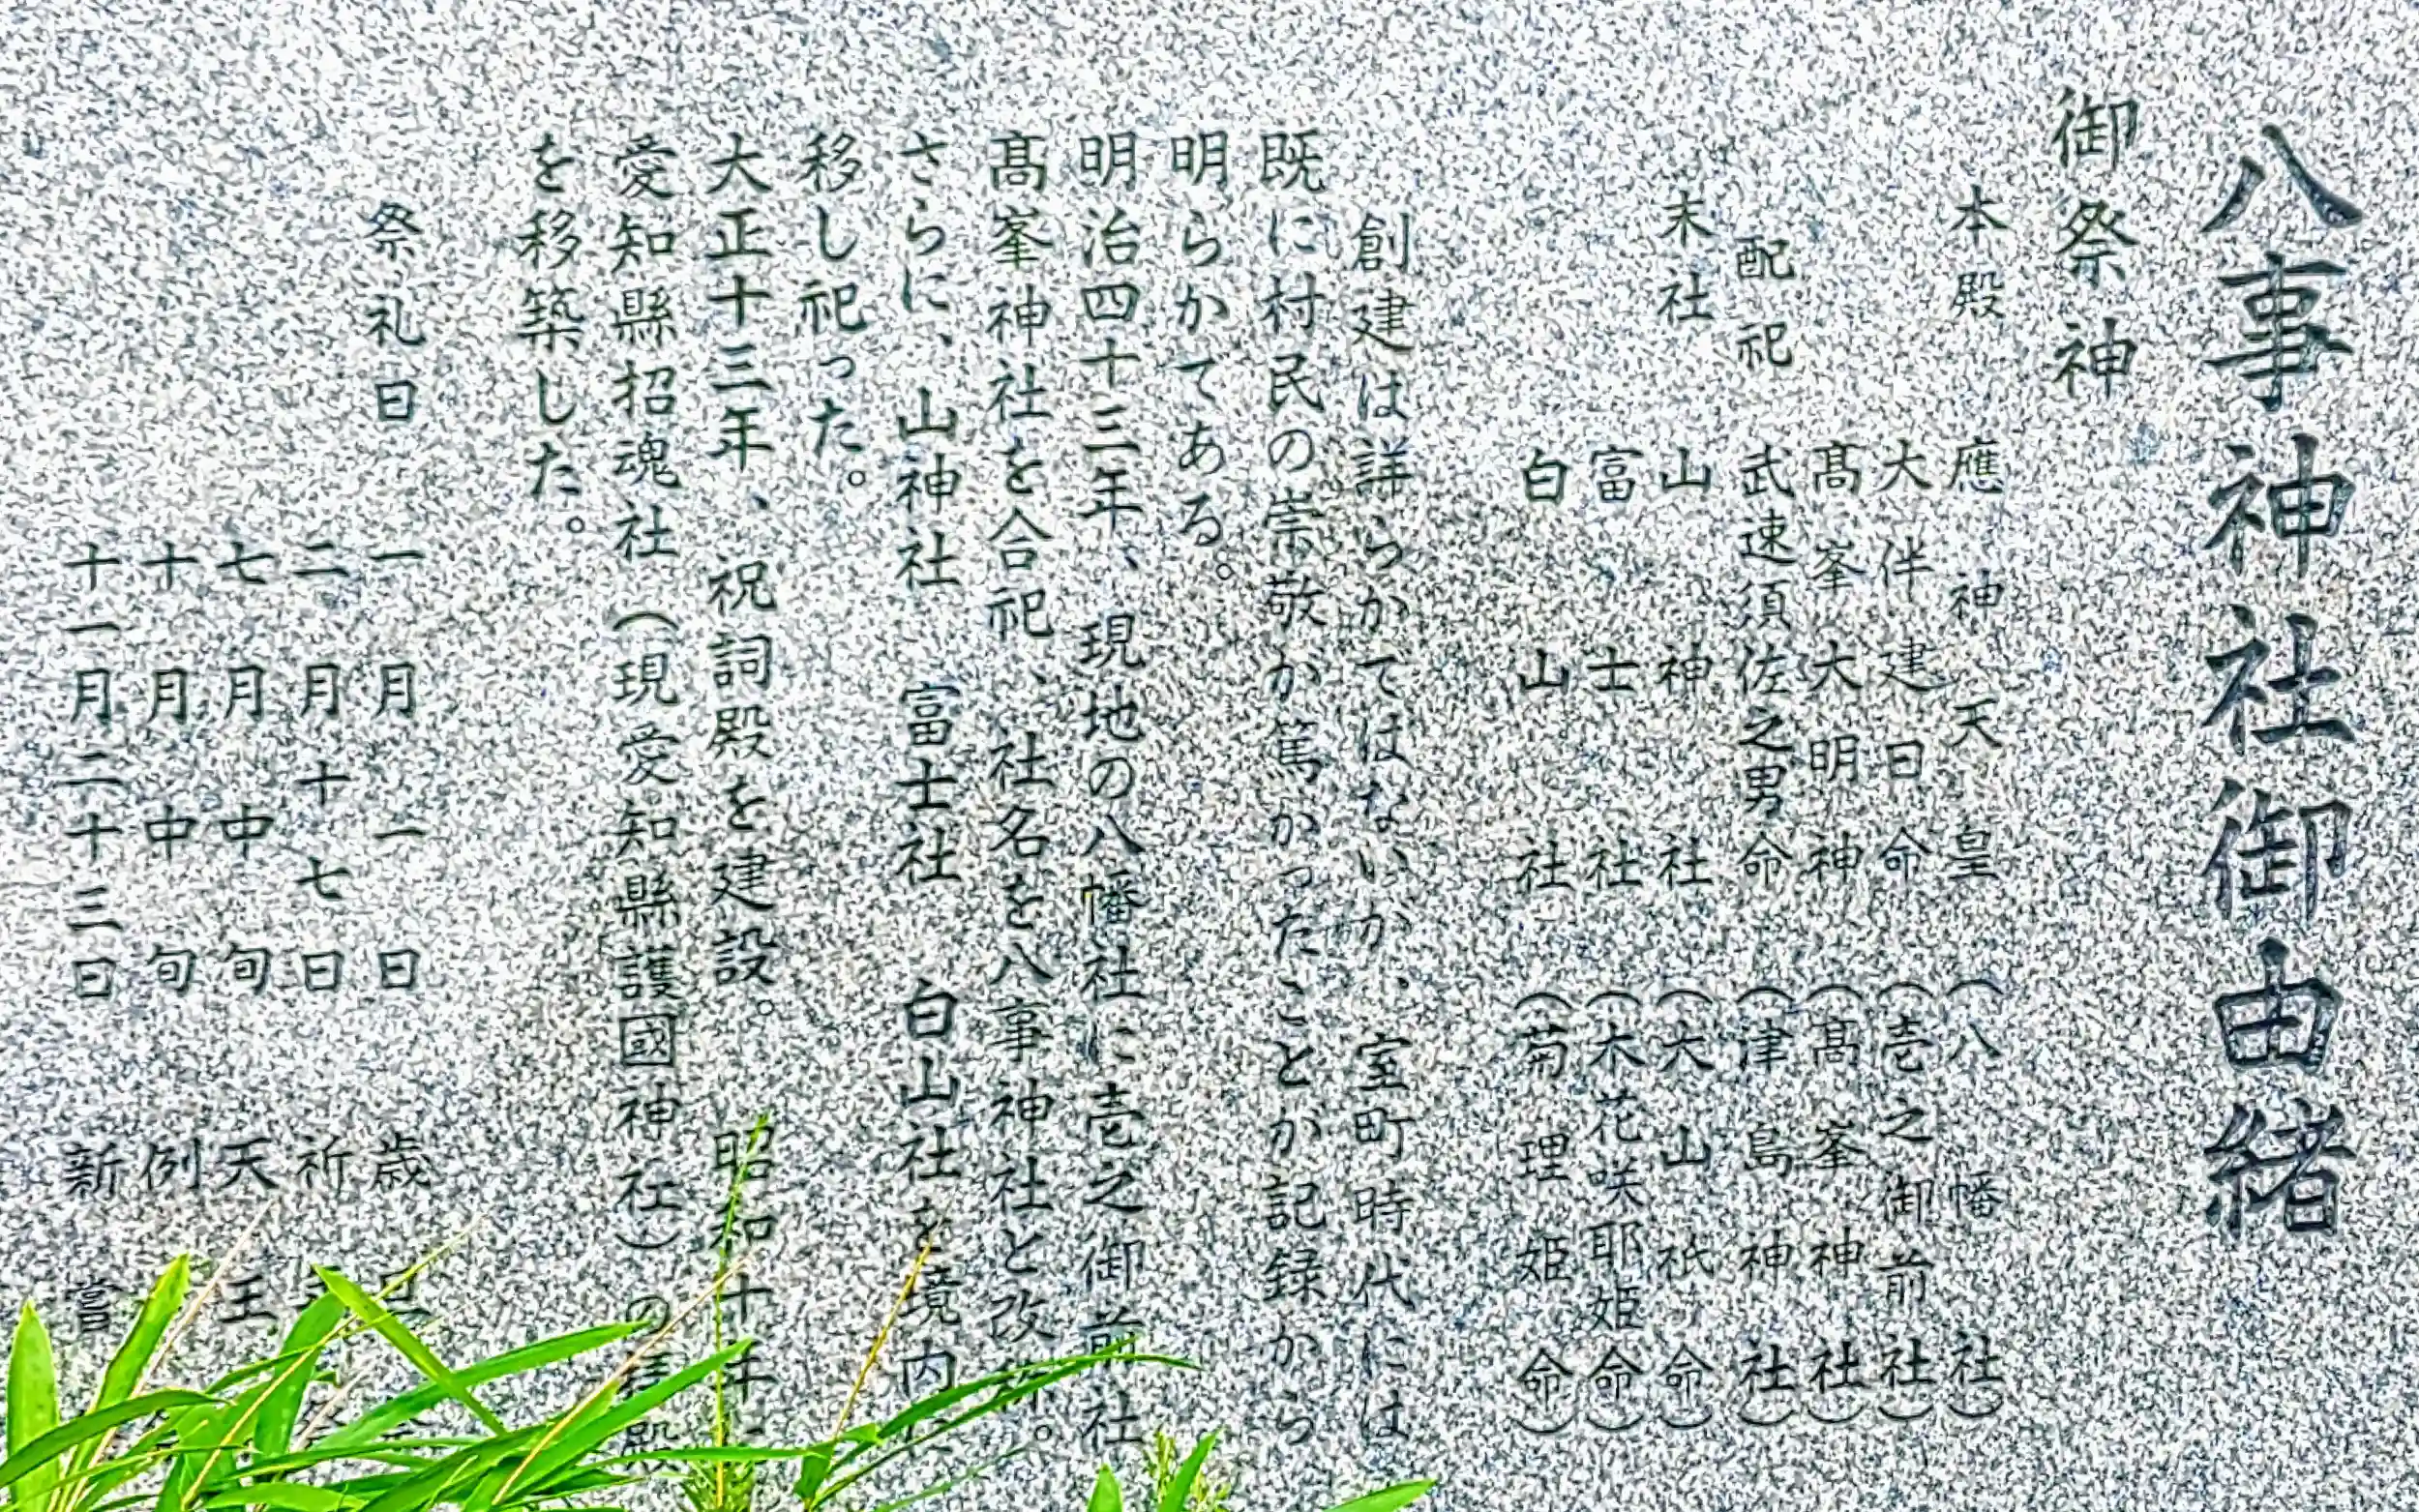 八事神社御由緒
御祭神
本殿 應神天皇 (八幡社)
大伴建日命 (壱之御前社)
髙峯大明神 (髙峯神社)
配祀 武速須佐之男命 (津島神社)
末社 山神社 (大山祇命)
富士社 (木花咲耶姫命)
白山社 (菊理姫命)
創建は詳らかではないが、室町時代には
既に村民の崇敬が篤かったことが記録から
明らかである。
明治四十三年、現地の八幡社に壱之御前社
髙峯神社を合祀、社名を八事神社と改
さらに、山神社 富士社 白山社を境内に
移し祀った。
大正十三年、祝詞殿を建設。 昭和十年、
愛知縣招魂社(現愛知縣護國神社)の拝殿
を移築した。
祭礼日 一月一日 歳旦
二月十七日 祈
七月中旬 天王
十月中旬 例
十一月二十三日 新嘗